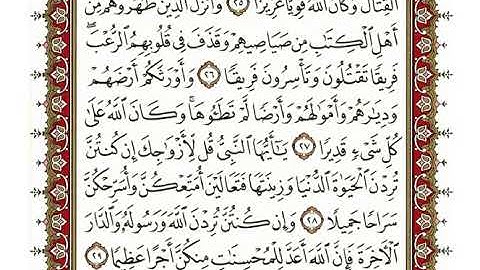 ٱلۡقِتَالَۚ وَكَانَ ٱللَّهُ قَوِيًّا عَزِيزٗا ٢٥ وَأَنزَلَ ٱلَّذِينَ ظَٰهَرُوهُم مِّنۡ
أَهۡلِ ٱلۡكِتَٰبِ مِن صَيَاصِيهِمۡ وَقَذَفَ فِي قُلُوبِهِمُ ٱلرُّعۡبَۚ
فَرِيقٗا تَقۡتُلُونَ وَتَأۡسِرُونَ فَرِيقٗا ٢٦ وَأَوۡرَثَكُمۡ أَرۡضَهُمۡ
وَدِيَٰرَهُمۡ وَأَمۡوَٰلَهُمۡ وَأَرۡضٗا لَّمۡ تَطَـُٔوهَاۚ وَكَانَ ٱللَّهُ عَلَىٰ
كُلِّ شَيۡءٖ قَدِيرٗا ٢٧ يَٰٓأَيُّهَا ٱلنَّبِيُّ قُل لِّأَزۡوَٰجِكَ إِن كُنتُنَّ
تُرِدۡنَ ٱلۡحَيَوٰةَ ٱلدُّنۡيَا وَزِينَتَهَا فَتَعَالَيۡنَ أُمَتِّعۡكُنَّ وَأُسَرِّحۡكُنَّ
سَرَاحٗا جَمِيلٗا ٢٨ وَإِن كُنتُنَّ تُرِدۡنَ ٱللَّهَ وَرَسُولَهُۥ وَٱلدَّارَ
ٱلۡأٓخِرَةَ فَإِنَّ ٱللَّهَ أَعَدَّ لِلۡمُحۡسِنَٰتِ مِنكُنَّ أَجۡرًا عَظِيمٗا ٢٩